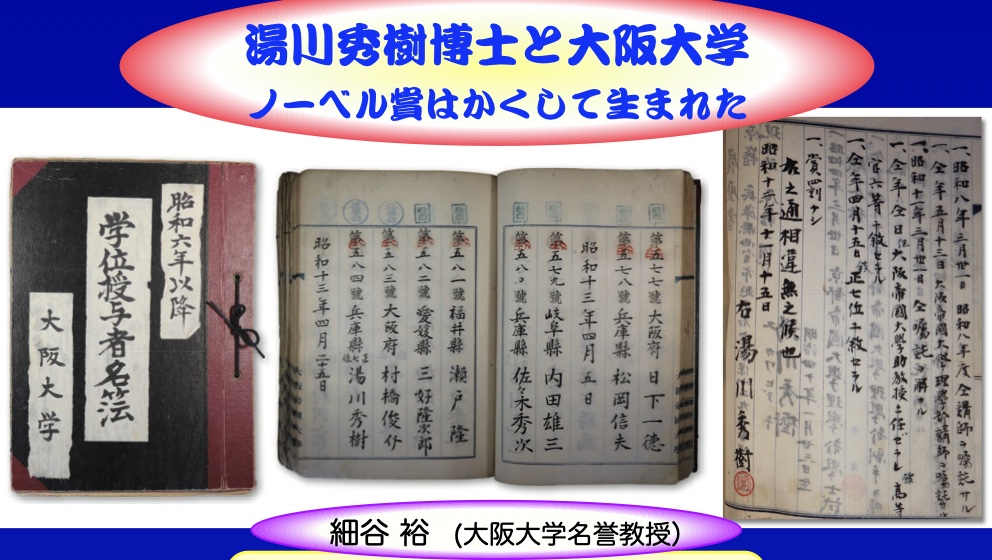 湯川秀樹博士と大阪大学
ノーベル賞はかくして生まれた
昭和六年以降
学位授与者名簿
大阪大学
第五七七號 大阪府 日下一德
第五七八號 兵庫縣 松岡信夫
昭和十三年四月五日
第五七九號 岐阜縣 内田雄三
第五八〇號 兵庫縣 佐々木秀次
第五八一號 福井縣 瀬戸隆
第五八二號 愛媛縣 三好隆次郎
第五八三號 大阪府 村橋俊介
第五八四號 兵庫縣 正七位 湯川秀樹
昭和十三年四月二十五日
一、昭和八年三月卅一日 昭和八年度 全講師ヲ嘱託サル
一、仝年五月十三日 大阪帝國大學理學部講師ヲ嘱託サル
一、昭和十一年三月卅一日 仝嘱託ヲ解カル
一、仝年仝日 任大阪帝國大學助教授ニ任ゼラル 高等
官六等ニ敍セラル
一、仝年四月十五日 正七位ニ敍セラル
一、賞罰ナシ
右之通相違無之候也
昭和十二年十一月十五日
右 湯川秀樹
細谷 裕 (大阪大学名誉教授)